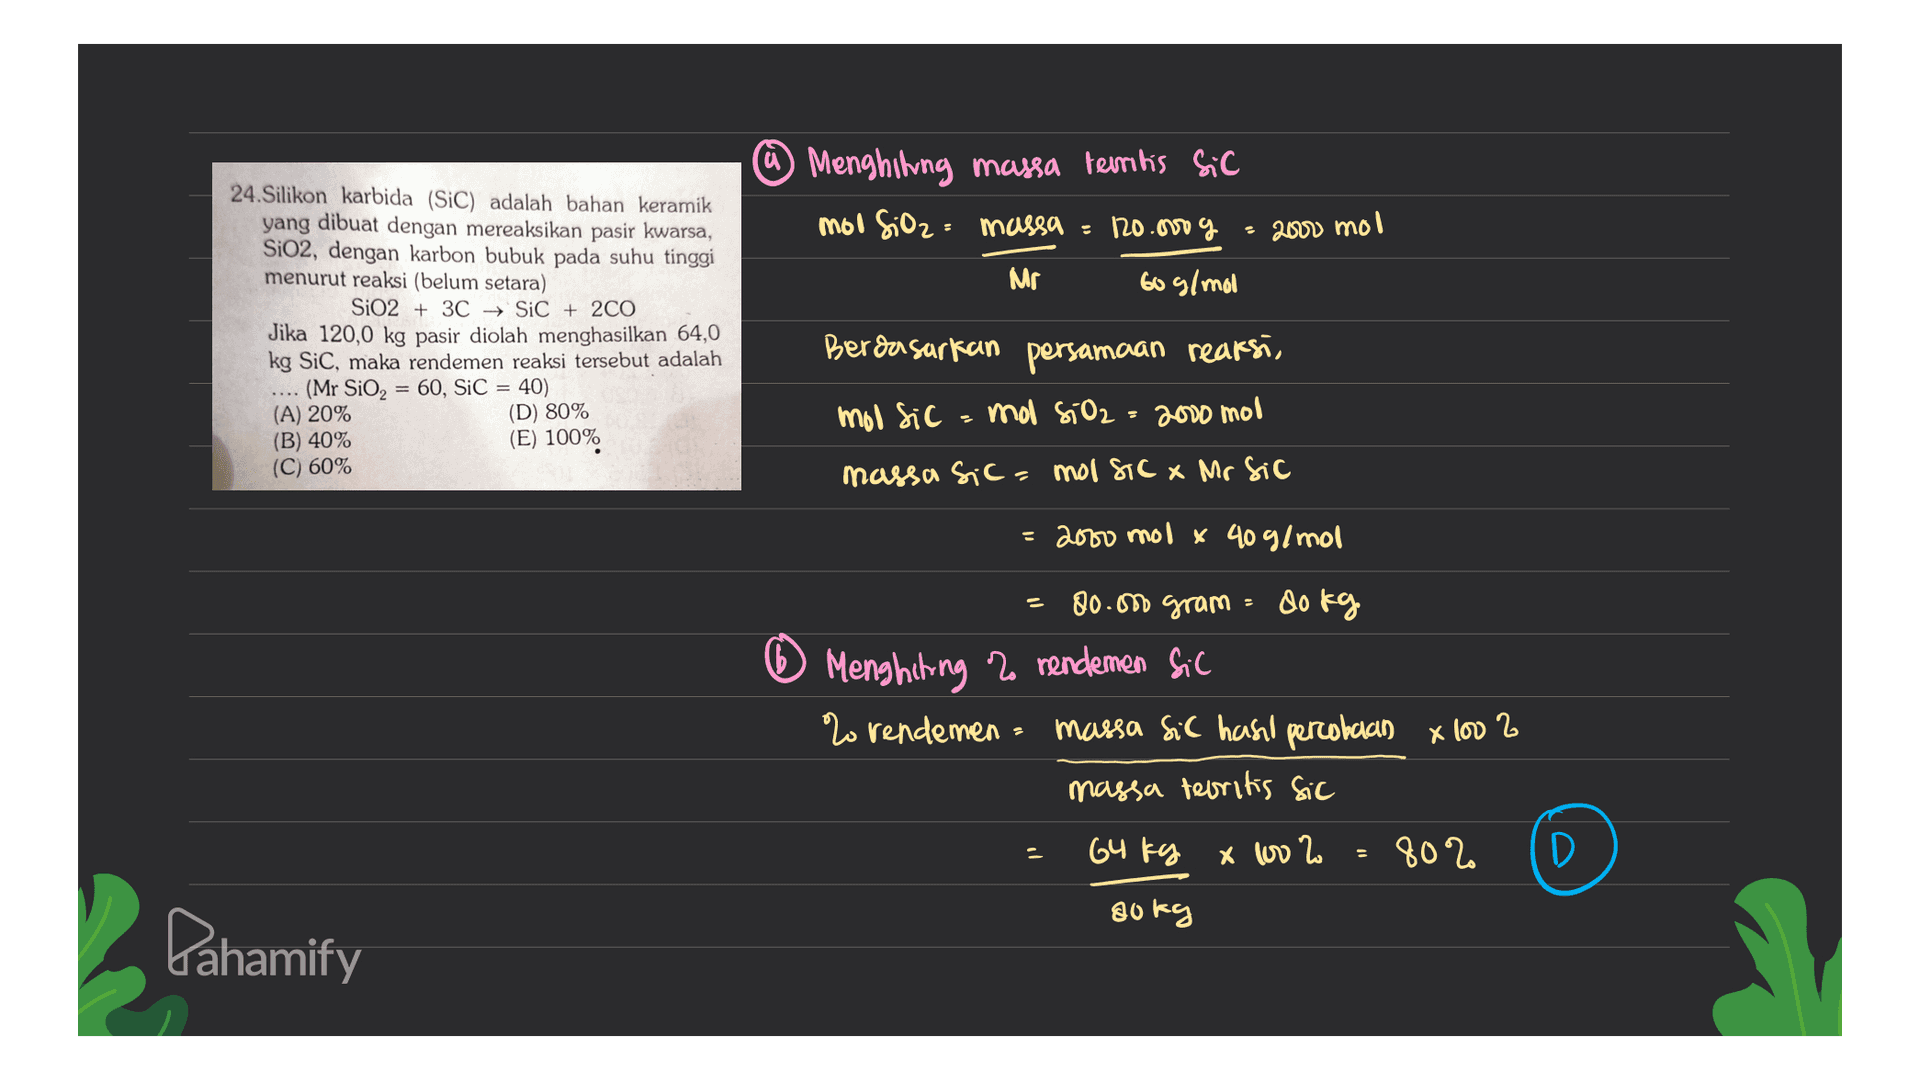 24.Silikon karbida (SiC) adalah bahan keramik
yang dibuat dengan mereaksikan pasir kwarsa,
SiO2, dengan karbon bubuk pada suhu tinggi
menurut reaksi (belum setara)
SiO2 + 3C → SiC + 2CO
Jika 120,0 kg pasir diolah menghasilkan 64,0
kg SiC, maka rendemen reaksi tersebut adalah
.... (Mr SiO₂ = 60, SiC = 40)
(A) 20% (D) 80%
(B) 40% (E) 100%
(C) 60%
ⓐ Menghitung massa teoritis SiC
mol SiO₂ = massa = 120.000 g = 2000 mol
Mr 60 g/mol
Berdasarkan persamaan reaksi,
mol SiC = mol SiO₂ = 2000 mol
massa SiC = mol SiC x Mr SiC
= 2000 mol x 40 g/mol
= 80.000 gram = 80 kg
ⓑ Menghitung % rendemen SiC
% rendemen = massa SiC hasil percobaan x 100 %
massa teoritis SiC
= 64 kg x 100 % = 80 % D
80 kg
Pahamify